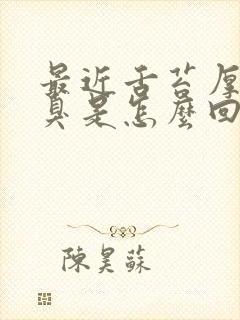 最近舌苔厚
真是怎麼回
陳昊蘇